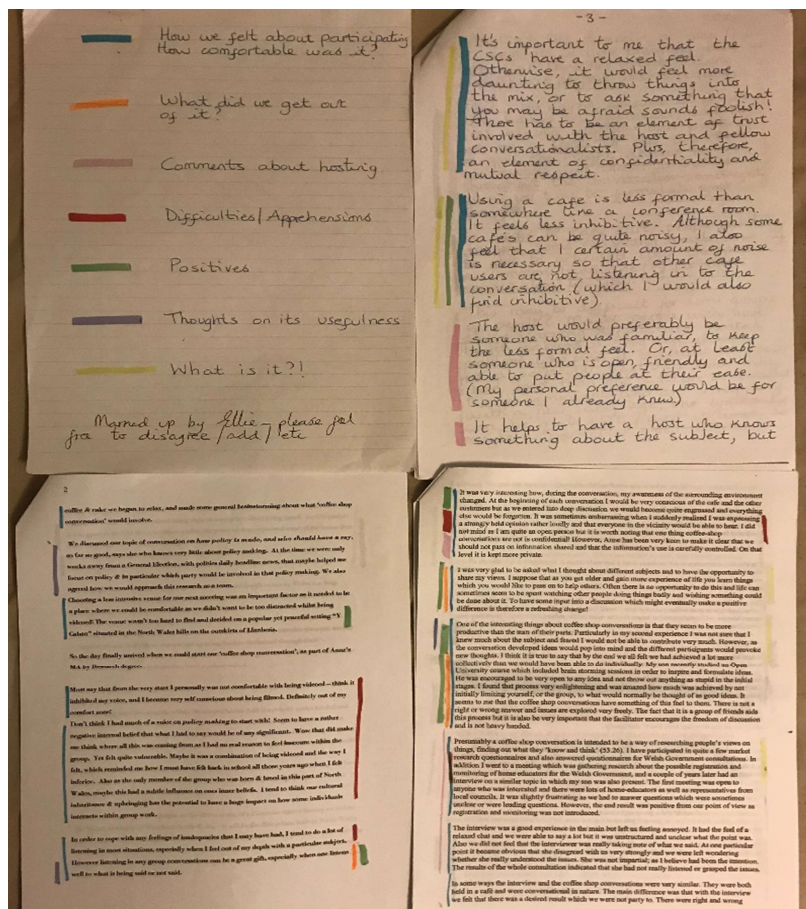 How we felt about participating
How comfortable was it?
What did we get out
of it?
Comments about hosting
Difficulties/Apprehensions
Positives
Thoughts on its usefulness
What is it?!
Marked up by Ellie – please feel
free to disagree/add/etc
- 3 -
It's important to me that the
CSCs have a relaxed feel.
Otherwise, it would feel more
daunting to throw things into
the mix, or to ask something that
you may be afraid sounds foolish!
There has to be an element of trust
involved with the host and fellow
conversationalists. Plus, therefore,
an element of confidentiality and
mutual respect.
Using a cafe is less formal than
somewhere like a conference room.
It feels less inhibitive. Although some
cafe's can be quite noisy, I also
feel that I certain amount of noise
is necessary so that other cafe
users are not listening in to the
conversation (which I would also
find inhibitive).
The host would preferably be
someone who was familiar, to keep
the less formal feel. Or, at least
someone who is open, friendly and
able to put people at their ease.
(My personal preference would be for
someone I already knew.)
It helps to have a host who knows
something about the subject, but
2
coffee & cake we began to relax, and made some general brainstorming about what 'coffee shop
conversation' would involve.
We discussed our topic of conversation on how policy is made, and who should have a say,
so far so good, says she who knows very little about policy making. At the time we were only
weeks away from a General Election, with politics daily headline news, that maybe helped me
focus on policy & in particular which party would be involved in that policy making. We also
agreed how we would approach this research as a team.
Choosing a less intrusive venue for our next meeting was an important factor as it needed to be
a place where we could be comfortable as we didn't want to be too distracted whilst being
videoed! The venue wasn't too hard to find and decided on a popular yet peaceful setting "Y
Gelato" situated in the North Wales hills on the outskirts of
So the day finally arrived when we could start our 'coffee shop conversation', as part of Anne's
MA by Research degree.
Must say that from the very start I personally was not comfortable with being videoed – think it
inhibited my voice, and I became very self conscious about being filmed. Definitely out of my
comfort zone!
Don't think I had much of a voice on policy making to start with! Seem to have a rather
negative internal belief that what I had to say would be of any significant. Wow that did make
me think where all this was coming from as I had no real reason to feel insecure within the
group. Yet felt quite vulnerable. Maybe it was a combination of being videoed and the way I
felt, which reminded me how I must have felt back in school all those years ago when I felt
inferior. Also as the only member of the group who was born & bred in this part of North
Wales, maybe this had a subtle influence on ones inner beliefs. I tend to think our cultural
inheritance & upbringing has the potential to have a huge impact on how some individuals
interacts within group work.
In order to cope with any feelings of inadequacies that I may have had, I tend to do a lot of
listening in most situations, especially when I feel out of my depth with a particular subject.
However listening in any group conversations can be a great gift, especially when one listens
well to what is being said or not said.
It was very interesting how, during the conversation, my awareness of the surrounding environment
changed. At the beginning of each conversation I would be very conscious of the cafe and the other
customers but as we entered into deep discussion we would become quite engrossed and everything
else would be forgotten. It was sometimes embarrassing when I suddenly realized I was expressing
a strongly held opinion rather loudly and that everyone in the vicinity would be able to hear. I did
not mind as I am quite an open person but it is worth noting that one thing coffee-shop
conversations are not is confidential! However, Anne has been very keen to make it clear that we
should not pass on information shared and that the information's use is carefully controlled. On that
level it is kept more private.
I was very glad to be asked what I thought about different subjects and to have the opportunity to
share my views. I suppose that as you get older and gain more experience of life you learn things
which you would like to pass on to help others. Often there is no opportunity to do this and life can
sometimes seem to be spent watching other people doing things badly and wishing something could
be done about it. To have some input into a discussion which might eventually make a positive
difference is therefore a refreshing change!
One of the interesting things about coffee shop conversations is that they seem to be more
productive than the sum of their parts. Particularly in my second experience I was not sure that I
knew much about the subject and feared I would not be able to contribute very much. However, as
the conversation developed ideas would pop into mind and the different participants would provoke
new thoughts. I think it is true to say that by the end we all felt we had achieved a lot more
collectively than we would have been able to do individually. My son recently studied an Open
University course which included brain storming sessions in order to inspire and formulate ideas.
He was encouraged to be very open to any ideas and not throw out anything as stupid in the initial
stages. I found that process very enlightening and was amazed how much was achieved by not
initially limiting yourself, or the group, to what would normally be thought of as good ideas. It
seems to me that the coffee shop conversations have something of this feel to them. There is not a
right or wrong answer and issues are explored very freely. The fact that it is a group of friends aids
this process but it is also be very important that the facilitator encourages the freedom of discussion
and is not heavy handed.
Presumably a coffee shop conversation is intended to be a way of researching people's views on
things, finding out what they "know and think" (53.26). I have participated in quite a few market
research questionnaires and also answered questionnaires for Welsh Government consultations. In
addition I went to a meeting which was gathering research about the possible registration and
monitoring of home educators for the Welsh Government, and a couple of years later had an
interview on a similar topic in which my son was also present. The first meeting was open to
anyone who was interested and there were lots of home-educators as well as representatives from
local councils. It was slightly frustrating as we had to answer questions which were sometimes
unclear or were leading questions. However, the end result was positive from our point of view as
registration and monitoring was not introduced.
The interview was a good experience in the main but left us feeling annoyed. It had the feel of a
relaxed chat and we were able to say a lot but it was unstructured and unclear what the point was.
Also we did not feel that the interviewer was really taking note of what we said. At one particular
point it became obvious that she disagreed with us very strongly and we were left wondering
whether she really understood the issues. She was not impartial; as I believe had been the intention.
The results of the whole consultation indicated that she had not really listened or grasped the issues.
In some ways the interview and the coffee shop conversations were very similar. They were both
held in a café and were conversational in nature. The main difference was that with the interview
we felt that there was a desired result which we were not party to. There were right and wrong